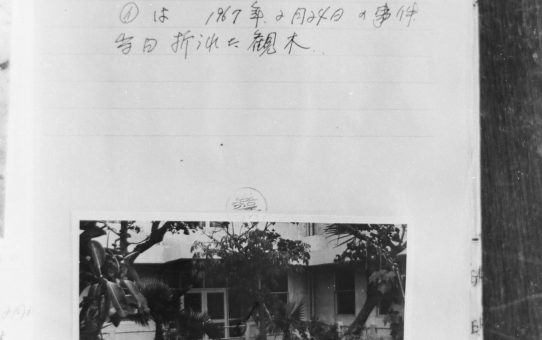 ①は 1967年2月24日の事件
当日折れた観木.